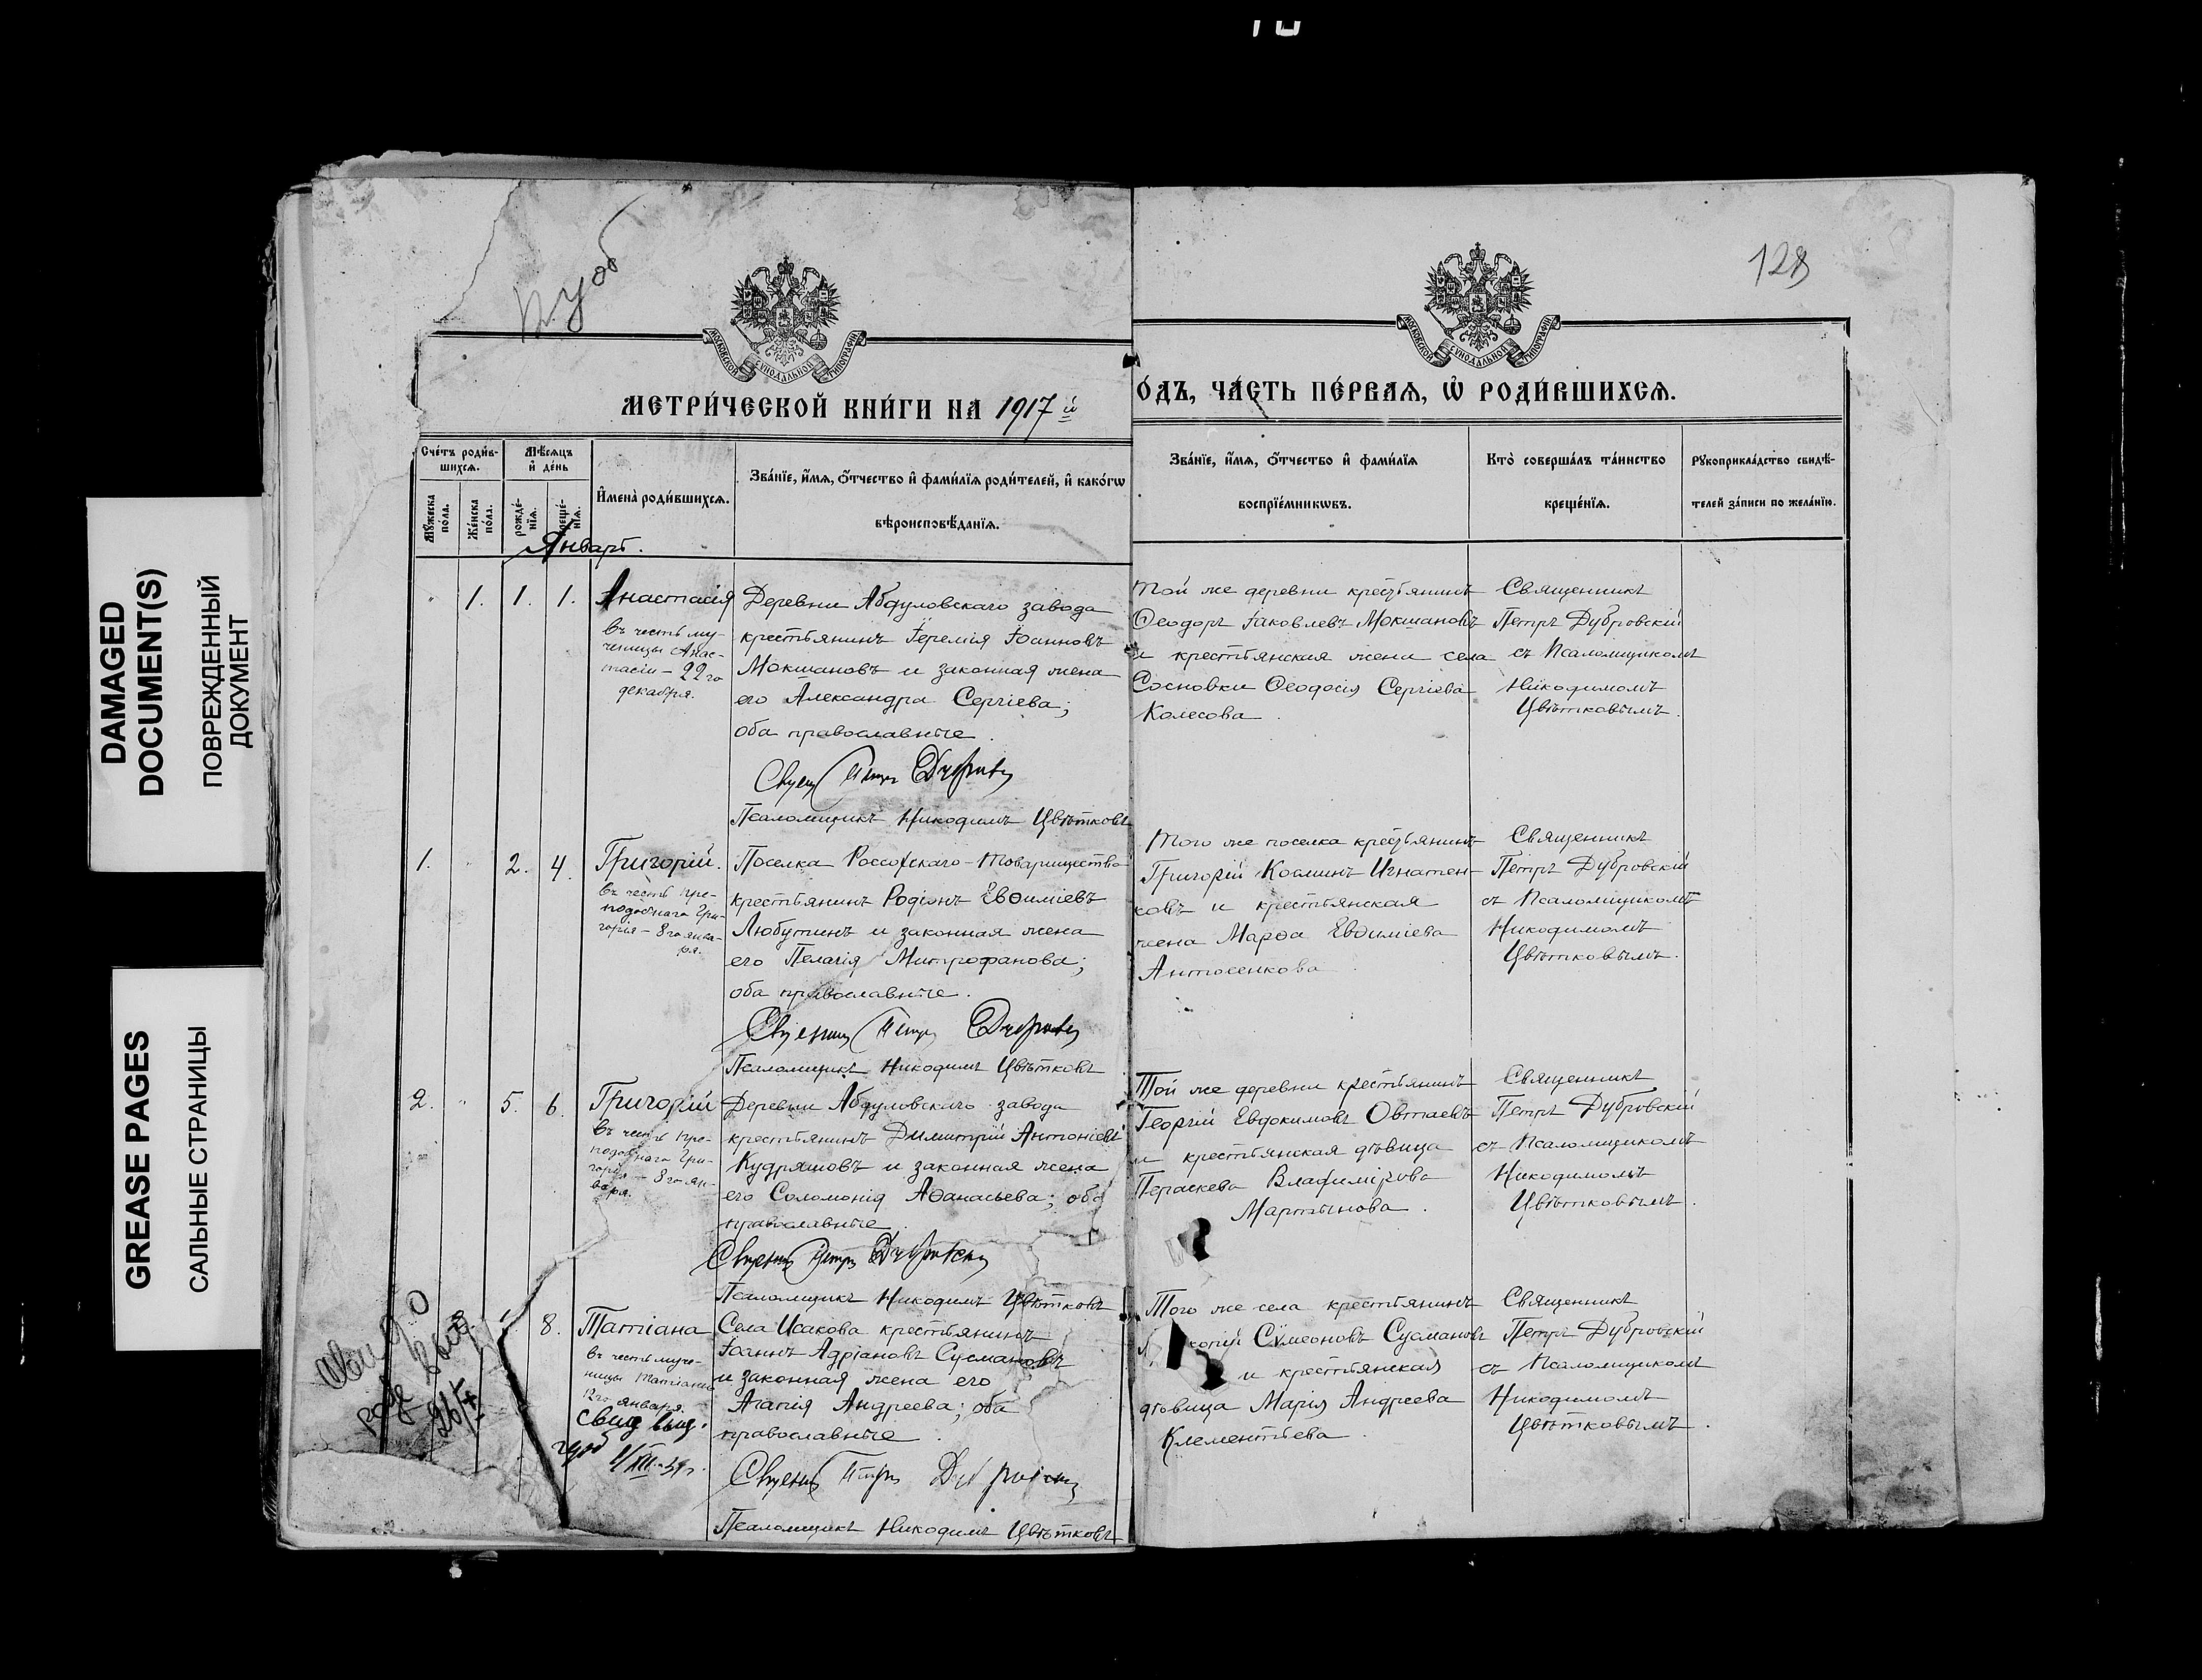 128
DAMAGED
DOCUMENT(S)
ПОВРЕЖДЕННЫЙ
ДОКУМЕНТ
GREASE PAGES
САЛЬНЫЕ СТРАНИЦЫ
МОСКОВСКОЙ СѴНОДАЛЬНОЙ ТИПОГРАФІИ
МОСКОВСКОЙ СѴНОДАЛЬНОЙ ТИПОГРАФІИ
МЕТРИ́ЧЕСКОЙ КНИ́ГИ НА 1917й
О́ДЪ, ЧА́СТЬ ПЕ́РВАѦ, Ѡ҆ РОДИ́ВШИХСѦ.
Сче́тъ роди́в-
шихсѧ.
Мѣ́сѧцъ
и҆ де́нь
Мꙋ́жеска
по́ла.
Же́нска
по́ла.
рожде́-
нїѧ.
креще́-
нїѧ.
И҆мена̀ роди́вшихсѧ.
Зва́нїе, и҆́мѧ, ѻ҆́тчество и҆ фами́лїѧ роди́телей, и҆ како́гѡ
вѣроисповѣ́данїѧ.
Зва́нїе, и҆́мѧ, ѻ҆́тчество и҆ фами́лїѧ
воспрїе́мникѡвъ.
Кто̀ соверша́лъ та́инство
креще́нїѧ.
Рꙋкоприкла́дство свидѣ́-
телей за́писи по жела́нїю.
Январь.
1. 1. 1.
Анастасія
въ честь му-
ченицы Анас-
тасіи – 22го
декабря.
Деревни Абдуловскаго завода
крестьянинъ Іеремія Іоанновъ
Мокшановъ и законная жена
его Александра Сергіева;
оба православные.
Псаломщикъ Никодимъ Цвѣтковъ
Той же деревни крестьянинъ
Ѳеодоръ Іаковлевъ Мокшановъ
и крестьянская жена села
Сосновки Ѳеодосія Сергіева
Колесова.
Священникъ
Петръ Дубровскій
съ Псаломщикомъ
Никодимомъ
Цвѣтковымъ.
1. 2. 4.
Григорій.
въ честь пре-
подобнаго Гри-
горія – 8го янва-
ря.
Поселка Россошскаго-Товарищества
крестьянинъ Родіонъ Евѳиміевъ
Любутинъ и законная жена
его Пелагія Митрофанова;
оба православные.
Псаломщикъ Никодимъ Цвѣтковъ
Того же поселка крестьянинъ
Григорій Косминъ Игнатен-
ковъ и крестьянская
жена Марѳа Евѳиміева
Антосенкова
Священникъ
Петръ Дубровскій
съ Псаломщикомъ
Никодимомъ
Цвѣтковымъ.
2. 5. 6.
Григорій
въ честь пре-
подобнаго Гри-
горія – 8го ян-
варя.
Деревни Абдуловскаго завода
крестьянинъ Димитрій Антоніевъ
Кудряшовъ и законная жена
его Соломонія Аѳанасьева; оба
православные.
Псаломщикъ Никодимъ Цвѣтковъ
Той же деревни крестьянинъ
Георгій Евдокимовъ Овтаевъ
и крестьянская дѣвица
Пераскева Владимірова
Мартынова.
Священникъ
Петръ Дубровскій
съ Псаломщикомъ
Никодимомъ
Цвѣтковымъ.
8.
Татіана
въ честь муче-
ницы Татіаны
12го января.
Села Исакова крестьянинъ
Іоаннъ Адріановъ Сусмановъ
и законная жена его
Агапія Андреева; оба
православные.
Псаломщикъ Никодимъ Цвѣтковъ
Того же села крестьянинъ
Сѵмеоновъ Сусмановъ
и крестьянская
дѣвица Марія Андреева
Клементьева.
Священникъ
Петръ Дубровскій
съ Псаломщикомъ
Никодимомъ
Цвѣтковымъ.